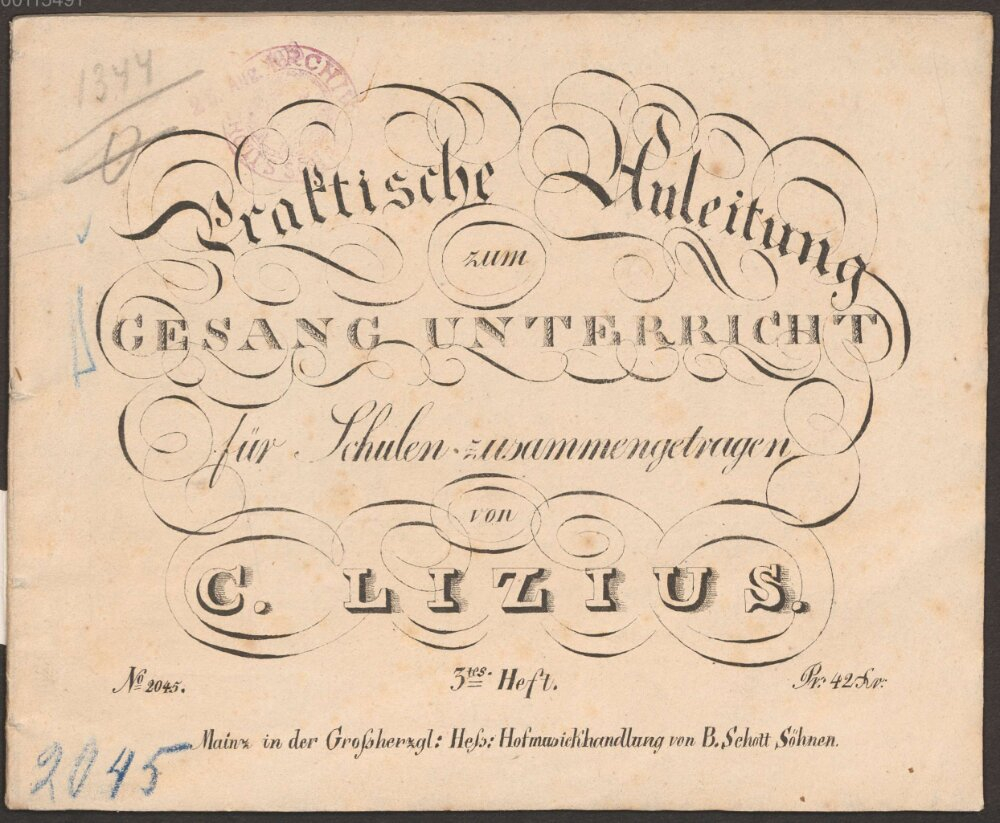 00115491
1344
Praktische Anleitung
zum
GESANG UNTERRICHT
für Schulen zusammengetragen
von
C. LIZIUS.
No 2045. 3tes. Heft. Pr: 42 Kr:
Mainz in der Großherzgl: Heß: Hofmusickhandlung von B. Schott Söhnen.
2045